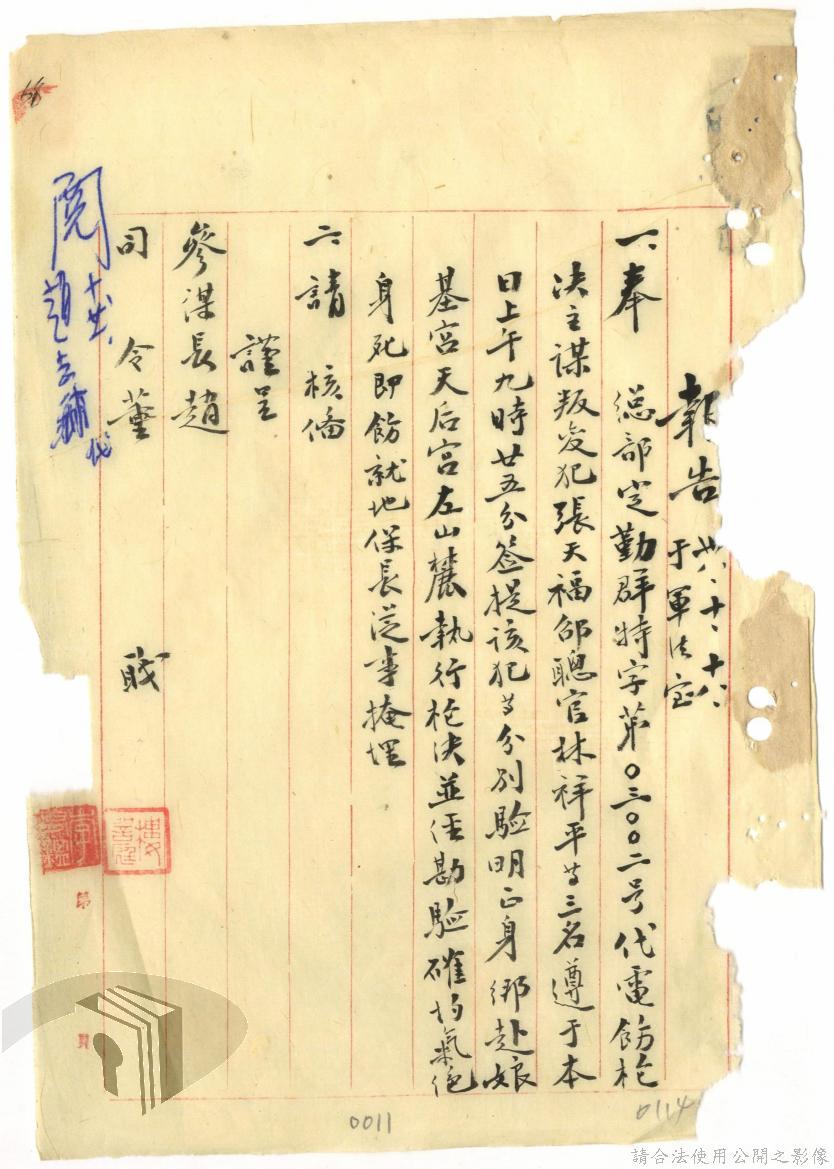 報告 卅八、十、十六、
于軍法室
一、奉 總部定勤群特字第〇三〇〇二号代電飭枪
决主謀叛变犯張天福邰聰官林祥平等三名遵于本
日上午九時廿五分簽提该犯等分别驗明正身綁赴娘
基宫天后宫左山麓執行枪决並経勘驗確均氣绝
身死即飭就地保長從事掩埋
二、請 核備
謹呈
參謀長趙
司 令董
職
閲
趙
代
第
頁
68
0011
0114
請合法使用公開之影像